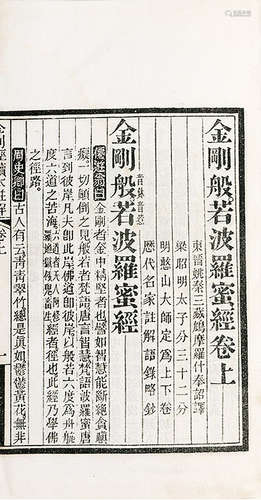 金剛般若波羅蜜經卷上
東語姚秦三藏鳩摩羅什奉詔譯
梁昭明太子分三十二分
明憨山大師定為上下卷
歷代名家註解語錄略鈔
金剛般若波羅蜜經
金剛者金中精堅者也譬如智慧能斷絕貪嗔
癡一切顛倒之見般若者梵語唐言智慧梵語波羅蜜唐
言到彼岸凡夫即此岸佛道即彼岸以般若六度為舟航
度六道之苦海
經者徑也此經乃學佛
之徑路
周史卿曰古人有云青青翠竹總是真如鬱鬱黃花無非